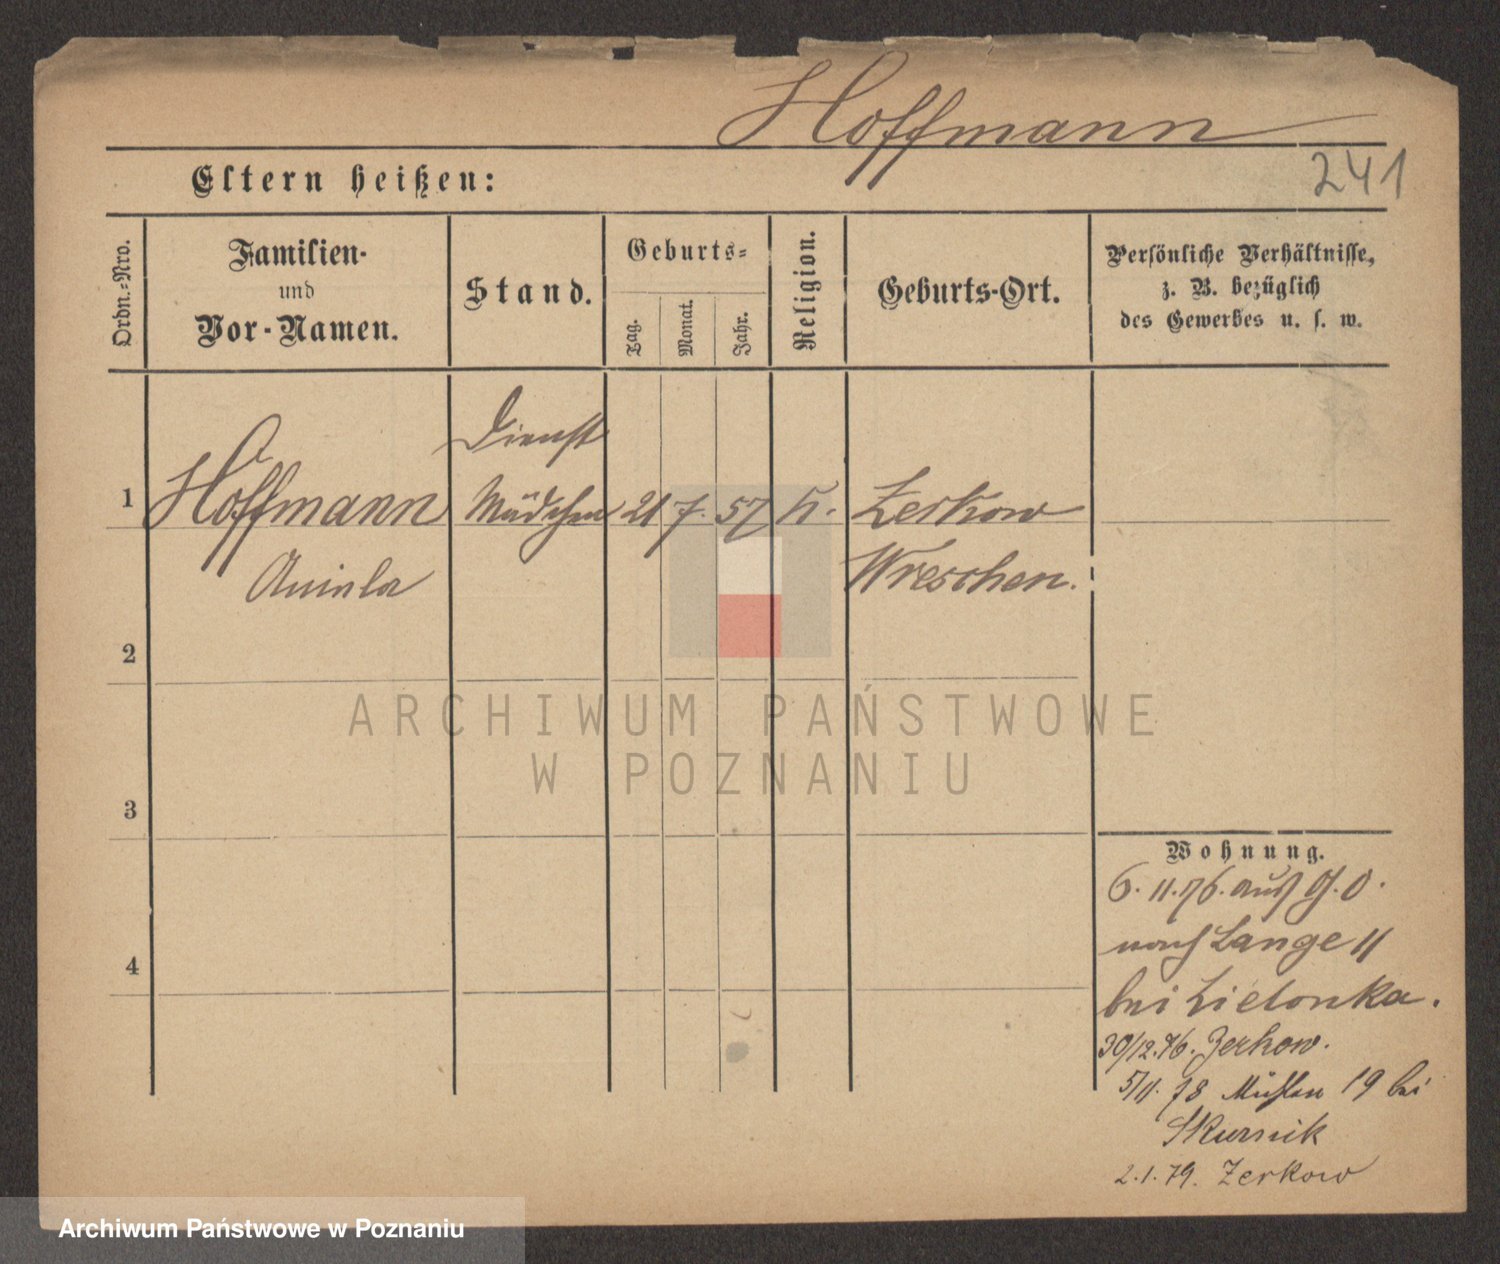 Hoffmann
241
Eltern heißen:
Ordn.-Nro.
Familien-
und
Vor-Namen.
Stand.
Geburts-
Tag.
Monat.
Jahr.
Religion.
Geburts-Ort.
Persönliche Verhältnisse,
z. B. bezüglich
des Gewerbes u. s. w.
Dienst
1 Hoffmann Mädchen 21 7. 57 K. Zerkow
Wreschen.
2
3
4
Wohnung.
6. 11. 76. aus G. O.
nach Lange 11
bei Zielonka.
30/12. 76. Zerkow.
5/11. 78 Mühlen 19 bei
Skurnik
2. 1. 79. Zerkow
ARCHIWUM PAŃSTWOWE
W POZNANIU
Archiwum Państwowe w Poznaniu